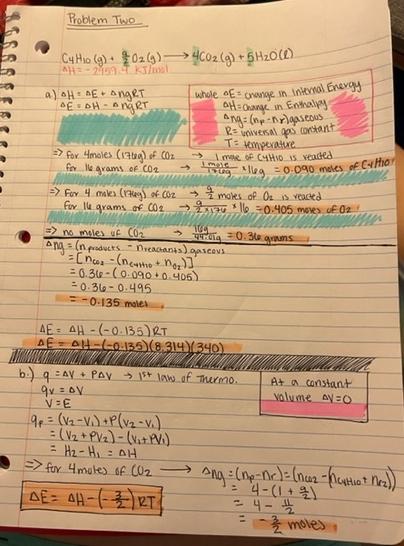 Problem Two
C4H10(g) + 9/2 O2(g) → 4CO2(g) + 5H2O(l)
ΔH = -2959.4 KJ/mol
a.) ΔH = ΔE + ΔngRT
ΔE = ΔH - ΔngRT
where ΔE = change in Internal Energy
ΔH = change in Enthalpy
Δng = (np - nr) gaseous
R = universal gas constant
T = temperature
=> for 4 moles (176g) of CO2 → 1 mole of C4H10 is reacted
for 16 grams of CO2 → 1 mole/176g × 16g = 0.090 moles of C4H10
=> For 4 moles (176g) of CO2 → 9/2 moles of O2 is reacted
For 16g of CO2 → 9/2×176 × 16 = 0.405 moles of O2
=> no moles of CO2 → 16g/44.01g = 0.36 grams
Δng = (nproducts - nreactants) gaseous
= [nCO2 - (nC4H10 + nO2)]
= 0.36 - (0.090 + 0.405)
= 0.36 - 0.495
= -0.135 moles
ΔE = ΔH - (-0.135)RT
ΔE = ΔH - (-0.135)(8.314)(340)
b.) q = ΔV + PΔV → 1st law of Thermo.
qv = ΔV
V = E
At a constant
volume ΔV = 0
qp = (V2 - V1) + P(V2 - V1)
= (V2 + PV2) - (V1 + PV1)
= H2 - H1 = ΔH
=> for 4 moles of CO2 → Δng = (np - nr) = (nCO2 - (nC4H10 + nO2)
= 4 - (1 + 9/2)
= 4 - 11/2
= -3/2 moles
ΔE = ΔH - (-3/2)RT